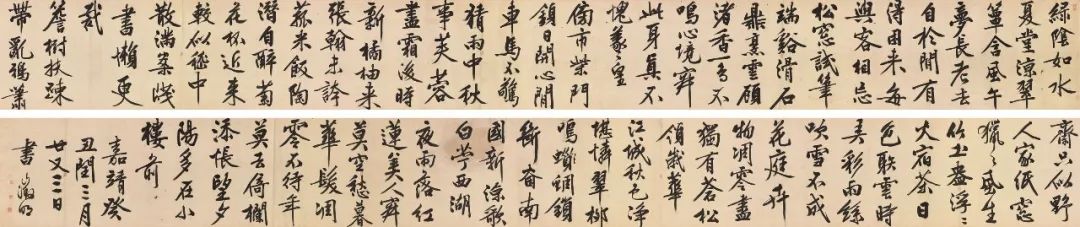 綠陰如水
夏堂涼翠
簟含風午
夢長老去
自於閒有
得困來每
與客相忘
松窗試筆
端谿滑石
鼎烹雲顧
渚香一鳥不
鳴心境寂
此身真不
愧羲皇
傍市柴門
鎖日開心閒
車馬不驚
猜雨中秋
事芙蓉
盡霜後時
新橘柚來
張翰未誇
菰米飯陶
潛自醉菊
花杯近來
較似嵇中
散滿案牋
書懶更
裁
簷樹扶疎
帶亂鴉蕭
齋只似野
人家紙窗
獵〻風生
竹土盎浮〻
火宿茶日
色聯雲時
弄彩雨絲
吹雪不成
花庭卉
物凋零盡
獨有蒼松
領歲華
江城秋色淨
堪憐翠柳
鳴蜩鎖
南
國新涼歌
白苧西湖
夜雨落紅
蓮美人寂
寞空愁暮
華髮凋
零不待年
莫去倚欄
添悵望夕
陽多在小
樓前
嘉靖癸
丑閏三月
廿又三日
徵明
書